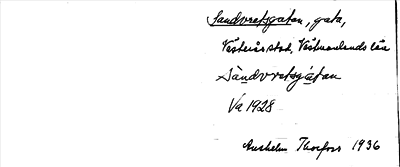 Sandvretsgatan, gata,
Västerås stad, Västmanlands län
Sàndvretsgàtan
Va 1928
Thorfors 1936